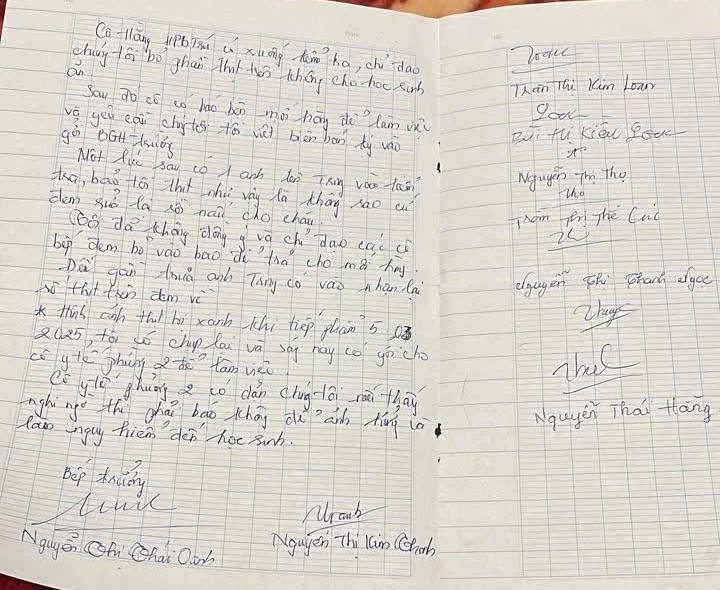 Cô Hằng HPBTrú có xuống kiểm tra, chỉ đạo
chúng tôi bỏ phần thịt trên không cho học sinh
ăn
Sau đó cô có báo bên mối hàng để làm việc
và yêu cầu chúng tôi viết biên bản ký vào
gởi BGH trường
Một lúc sau có 1 anh tên Tùng vào
bảo tôi thịt như vậy là không sao cứ
đem ra nấu cho cháu.
Cô đã không đồng ý và chỉ đạo các cô
bếp đem bỏ vào bao để trả cho mối hàng.
Đến gần trưa anh Tùng có vào nhận lại
số thịt trên đem về
* Hình ảnh thịt bị xanh khi tiếp phẩm 5 03
2025, tôi có chụp lại và sáng nay có gởi cho
cô y tế phường 2 để làm việc.
Cô y tế phường 2 có dặn chúng tôi nếu thấy
nghi ngờ thì phải báo không để ảnh hưởng và
làm nguy hiểm đến học sinh.
Bếp trưởng
Nguyễn Thị Thái Oanh
Thanh
Nguyễn Thị Kim Thanh
Loan
Trần Thị Kim Loan
Bùi thị Kiều
Nguyễn Thị Thọ
Thọ
Trần Thị Thế Cúc
Nguyễn Thị Thanh Ngọc
Nguyễn Thái Hằng